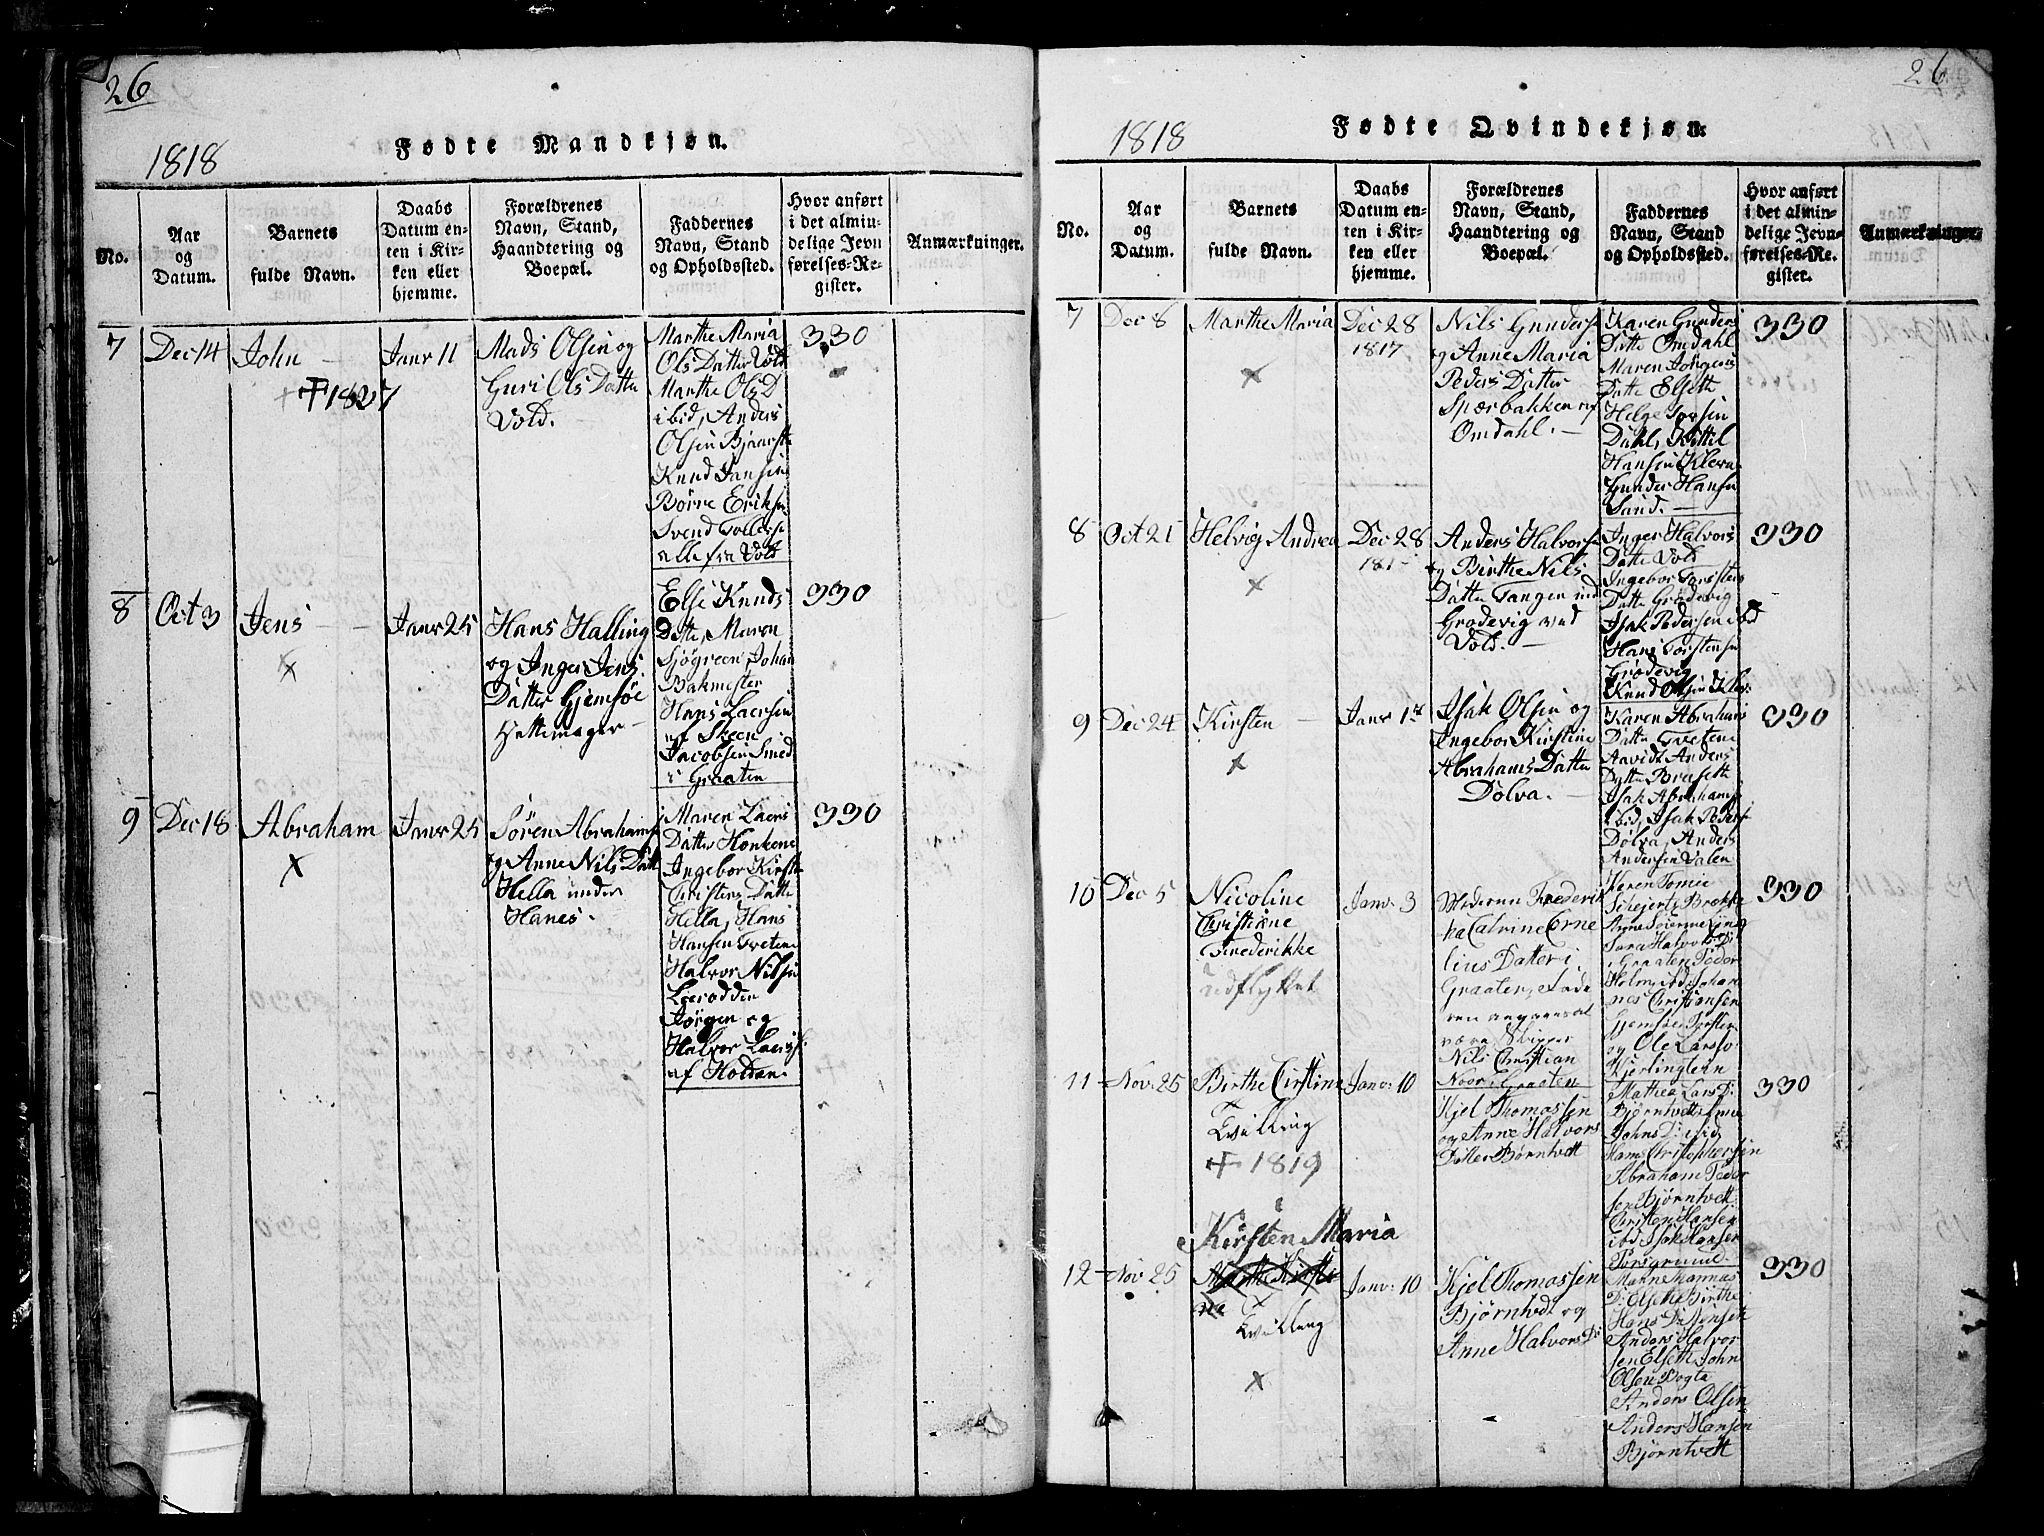 26
1818
Fødte Mandkjøn.
No.
Aar
og
Datum.
Barnets
fulde Navn.
Daabs
Datum en-
ten i Kir-
ken eller
hjemme.
Forældrenes
Navn, Stand,
Haandtering og
Boepæl.
Faddernes
Navn, Stand
og Opholdssted.
Hvor anført
i det almin-
delige Jevn
førelses-Re-
gister.
Anmærkninger.
7
Dec 14
John
+ 1827
Janr 11
Mads Olsen og
Guri Ols Datter
Vold.
Marthe Maria
Ols Datter Vold
Marthe Ols D
ibid, Anders
Olsen
Knud Jansen
Børre Eriksen
Svend
alle fra Vold
330
8
Oct 3
Jens
x
Janr 25
Hans Halling
og Inger Jens
Datter Gjemsøe
Hattemager
Else Knuds
Datter, Maren
Sjøgreen, Johan
Bakmester
Hans Laersen
af Skeen
Jacobsen Smed
i Graaten
330
9
Dec 18
Abraham
x
Janr 25
Søren Abrahams
og Anne Nils Datt
Hella under
Hanes.
Maren Laers
Datter Honkene
Ingebor Kirst
Christens Datte
Hella, Hans
Hansen Tveten
Halvor Nilsen
Lierodden
Jørgen og
Halvor Laers
af Holden.
330
26
1818
Fødte Qvindekjøn.
No.
Aar
og
Datum.
Barnets
fulde Navn.
Daabs
Datum en-
ten i Kir-
ken eller
hjemme.
Forældrenes
Navn, Stand,
Haandtering og
Boepæl.
Faddernes
Navn, Stand
og Opholdssted.
Hvor anført
i det almin-
delige Jevn-
førelses-Re-
gister.
Anmærkninger.
7
Dec 6
Marthe Maria
x
Dec 28
1817
Nils Gunders
og Anne Maria
Peders Datter
Spærbakken
Omdahl.
Karen Gunders
Datte Omdahl
Maren Jørgens
Datte Elseth
Helge
Dahl, Kittil
Hansen Kleva
Gunder Hansen
Sand.
330
8
Oct 21
Helvig Andrea
x
Dec 28
181
Anders Halvorsen
og Birthe Nils
Datter Tangen
Grødevig
Vold.
Inger Halvors
Datte Vold
Ingebor Torstens
Datte Grødevig
Isak Pedersen ibd
Hans Torstensen
Grødevig
Knud Olsen Klev
330
9
Dec 24
Kirsten
x
Janr 1
Isak Olsen og
Ingebor Kirstine
Abrahams Datter
Dolva.
Karen Abrahams
Datte Tvetene
Anders
Datte
Isak Abrahams
ibid, Isak Peders
Dølva, Anders
Andersen Valen
330
10
Dec 5
Nicoline
Christiane
Frederikke
udflyttet
Janv: 3
Moderen Frederik
ka Catrine Corne
lius Datter i
Graaten, Fade
ren angaves at
være Skipper
Nils Christian
Noor i Graaten
Karen Tomie
Brække
Anne
Sara Halvors D
i Graaten Peder
Holm, ibd Johan
nes Christiansen
Gjemsøe Torsten
og Ole Larss
Kjerlingtein
330
11
Nov: 25
Birthe Cirstine
Tvilling
+ 1819
Janv: 10
Kjel Thomassen
og Anne Halvors
Datter Børntvett
Mathea Lars D:
Bjørntvett
Johns D: ibid
Hans Christophersen
Abraham Peder
sen Bjørntvett
Cirsten Hansen
ibd Isak Hansen
Porsgrund
330
12
Nov 25
Kirsten Maria
Tvilling
x
Janv: 10
Kjel Thomassen
Bjørntvedt og
Anne Halvors D:
D: Elseth Birthe
Hans D:
Anders Halvor
sen Elseth John
Olsen
Anders Olsen
Anders Hansen
Bjørntvett
330